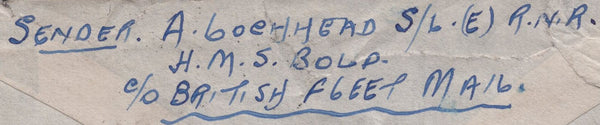 SENDER. A. LOCHHEAD S/L. (E) R.N.R.
H.M.S. BOLD.
c/o BRITISH FLEET MAIL.